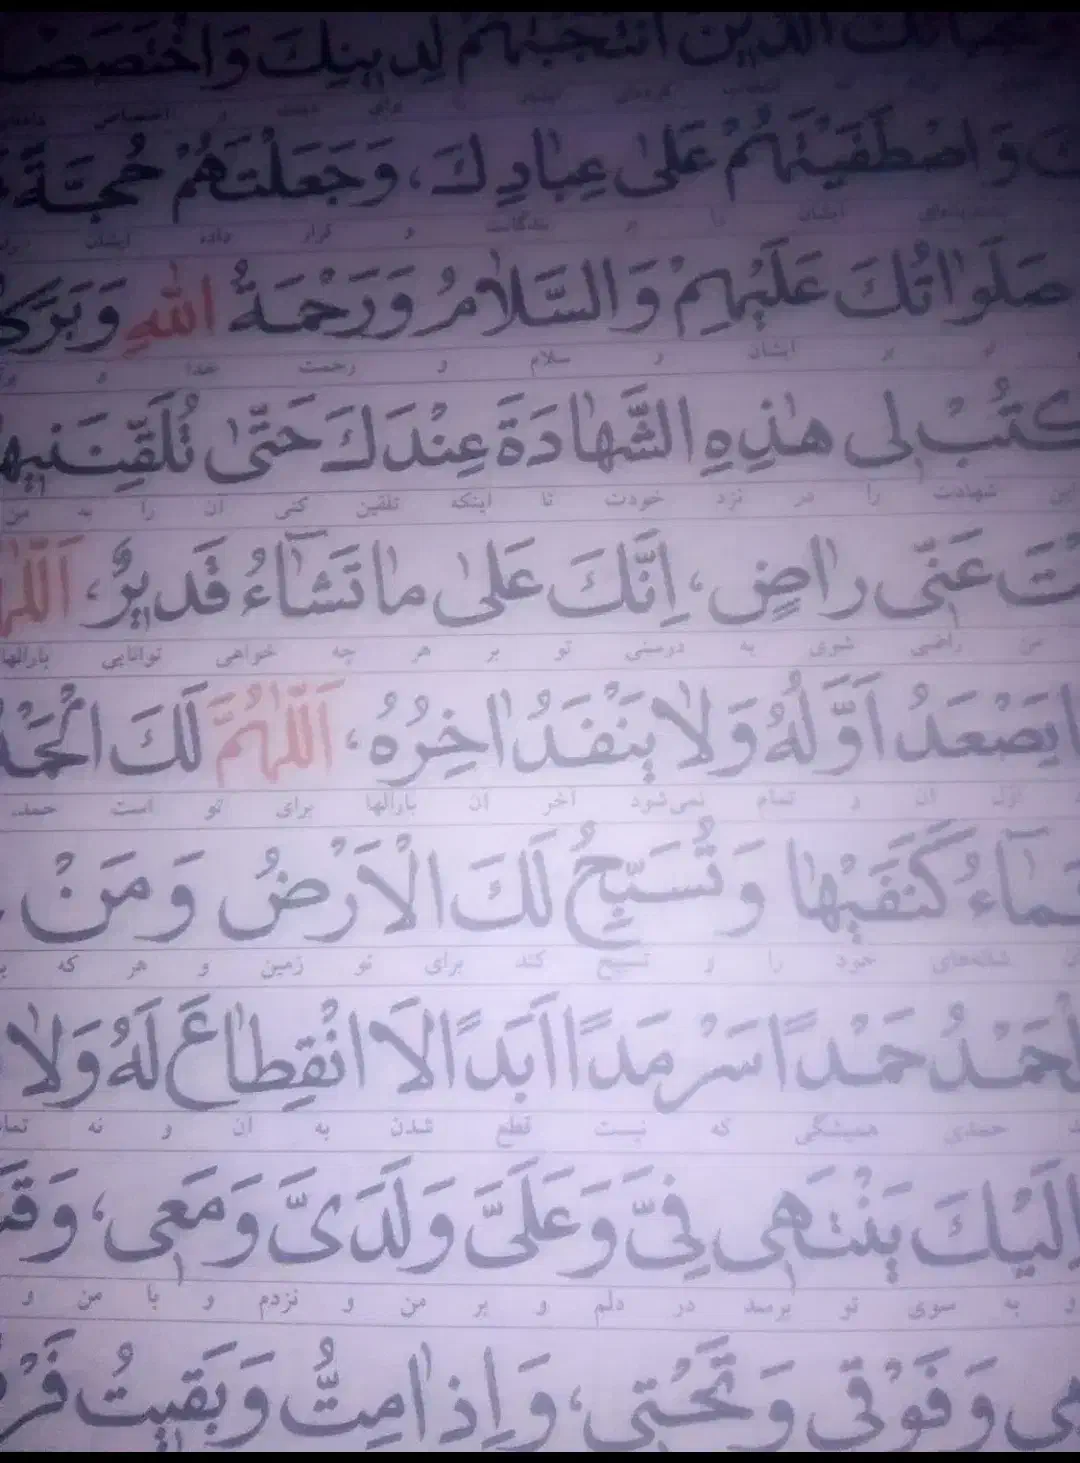 نُجَبَائِكَ الَّذينَ انْتَجَبْتَهُمْ لِدينِكَ وَاخْتَصَصْ
وَاصْطَفَيْتَهُمْ عَلىٰ عِبادِكَ، وَجَعَلْتَهُمْ حُجَّةً
ایشان را بر بندگانت و قرار داده ایشان را
صَلَواتُكَ عَلَيْهِمْ وَالسَّلامُ وَرَحْمَةُ اللهِ وَبَرَك
تو بر ایشان و سلام و رحمت خدا و بر
كْتُبْ لى هٰذِهِ الشَّهادَةَ عِنْدَكَ حَتّىٰ تُلَقِّنَنيها
این شهادت را در نزد خودت تا اینکه تلقین کنی آن را به من
تَ عَنّى راضٍ، اِنَّكَ عَلىٰ ما تَشآءُ قَديرٌ، اَللّٰه
من راضی شوی به درستی تو بر هر چه خواهی توانایی بارالها
يَصْعَدُ اَوَّلُهُ وَلا يَنْفَدُ اخِرُهُ، اَللّٰهُمَّ لَكَ الْحَمْد
اول آن و تمام نمی‌شود آخر آن بارالها برای تو است حمد
مآءُ كَنَفَيْها وَتُسَبِّحُ لَكَ الْاَرْضُ وَمَنْ
شانه‌های خود را و تسبیح کند برای تو زمین و هر که
لْحَمْدُ حَمْدًا سَرْمَدًا اَبَدًا لَا انْقِطاعَ لَهُ وَلا
حمدی همیشگی که نیست قطع شدن به آن و نه تما
اِلَيْكَ يَنْتَهى فِىَّ وَعَلَىَّ وَلَدَىَّ وَمَعى، وَقَب
و به سوی تو برسد در دلم و بر من و نزدم و با من و
مى وَفَوْقى وَتَحْتى، وَاِذا مِتُّ وَبَقيتُ فَرْ